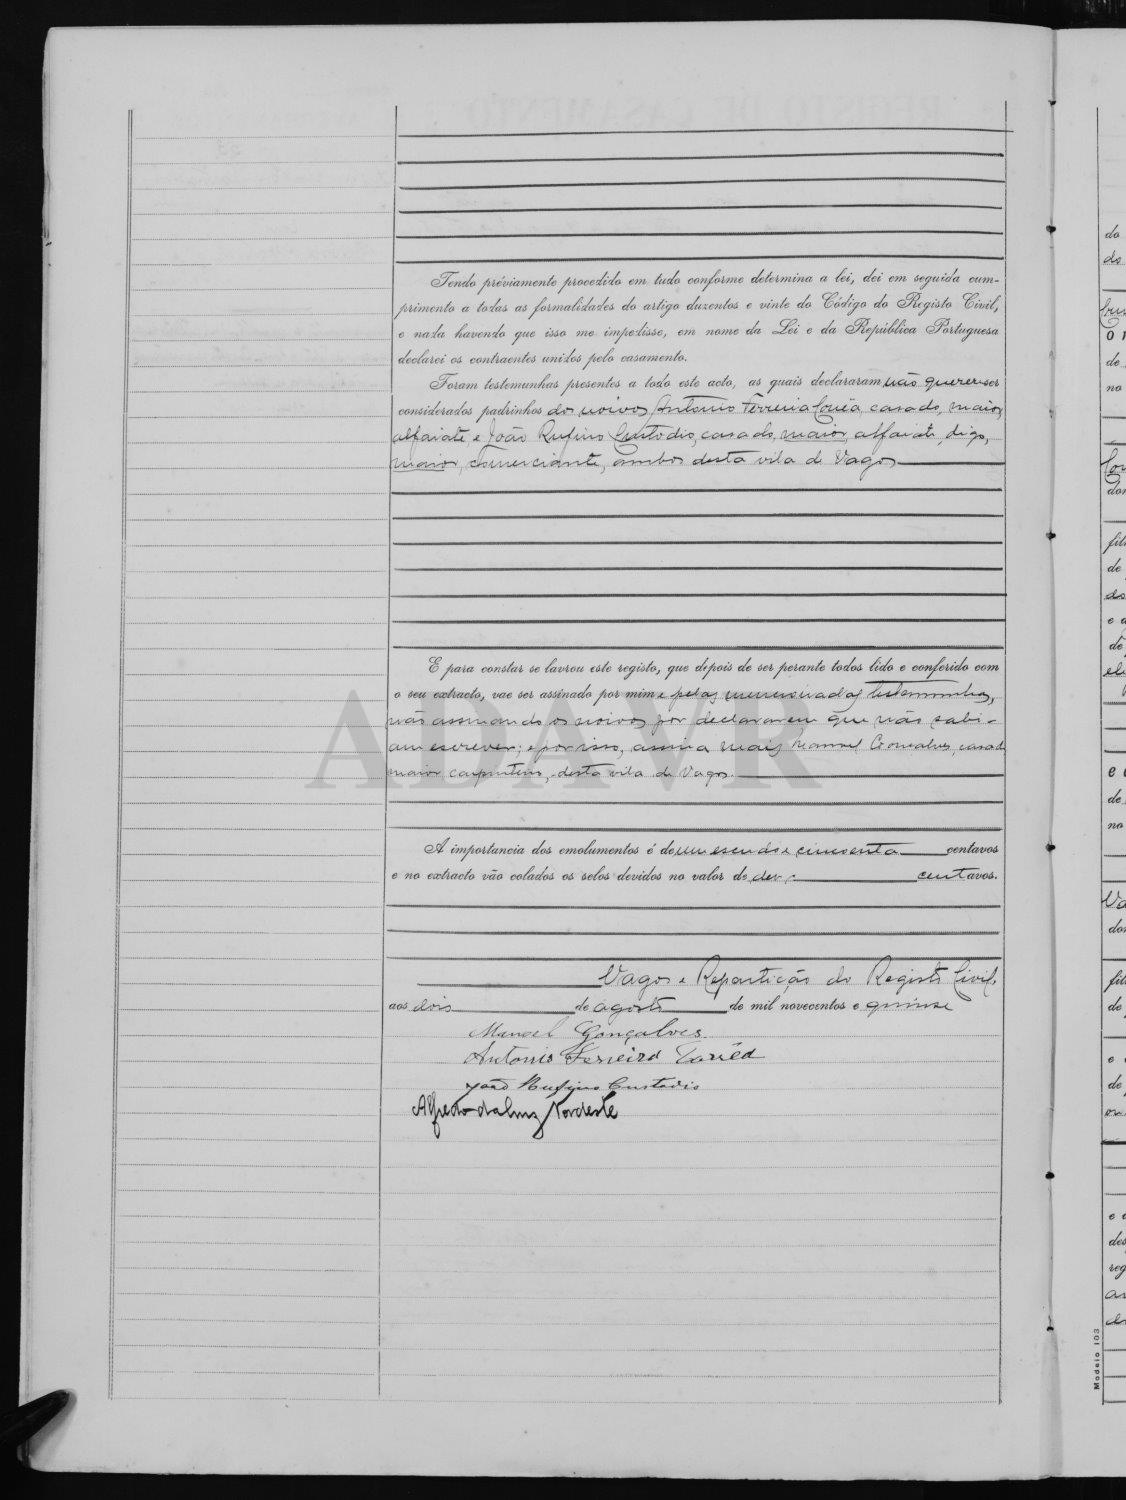 Tendo préviamente procedido em tudo conforme determina a lei, dei em seguida cum-
primento a todas as formalidades do artigo duzentos e vinte do Código do Registo Civil,
e nada havendo que isso me impedisse, em nome da Lei e da República Portuguesa
declarei os contraentes unidos pelo casamento.
Foram testemunhas presentes a todo este acto, as quais declararam não querer ser
considerados padrinhos dos noivos, Antonio Ferreira casado, maior,
alfaiate e João Rufino Custodio, casado, maior, alfaiate, digo,
maior, comerciante, ambos desta vila de Vagos
E para constar se lavrou este registo, que depois de ser perante todos lido e conferido com
o seu extracto, vae ser assinado por mim e pelas mencionadas testemunhas,
não assinando os noivos por declararem que não sabi-
am escrever; e por isso, assina mais Manoel Gonçalves, casado
maior carpinteiro, desta vila de Vagos.
ADAVR
A importancia dos emolumentos é de um escudo e cincoenta centavos
e no extracto vão colados os selos devidos no valor de dez centavos.
Vagos e Repartição do Registo Civil,
aos dois de agosto de mil novecentos e quinse
Manoel Gonçalves
Antonio Ferreira
João Rufino Custodio
Alfredo Nordeste
do
do
de
no
de
e
de
no
de
e
de
e
reg
Modelo 103